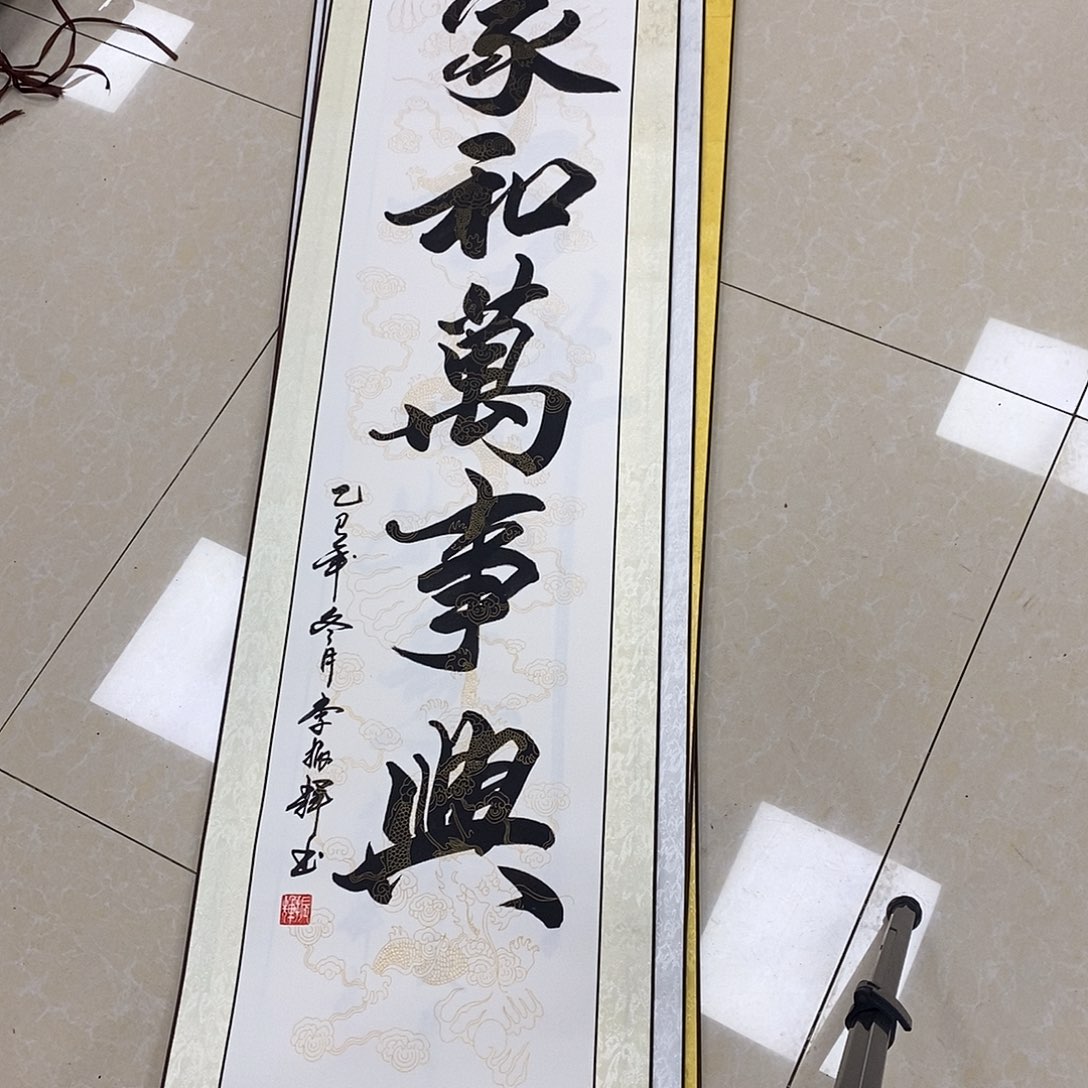 家和萬事興
乙巳年 冬月 李振輝书